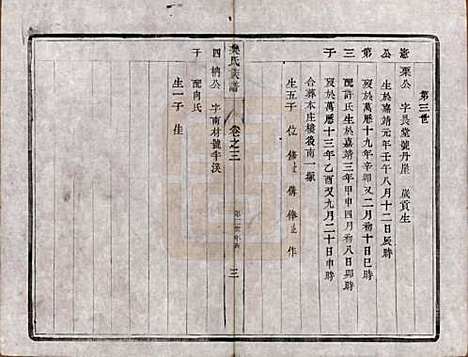 第三世
憲 栗公 字長堂號丹崖 歲貢生
公 生於嘉靖元年壬午八月十二日辰時
第 歿於萬曆十九年辛卯又二月初十日巳時
三 配許氏生於嘉靖三年甲申四月初八日卯時
子 歿於萬曆十三年乙酉又九月二十日申時
合葬本庄樓後南一振
生五子 位 脩 傳 俸 作
樊氏族譜 卷之三 三
四 枘公 字南材號手溪
配向氏
子 生一子 佳